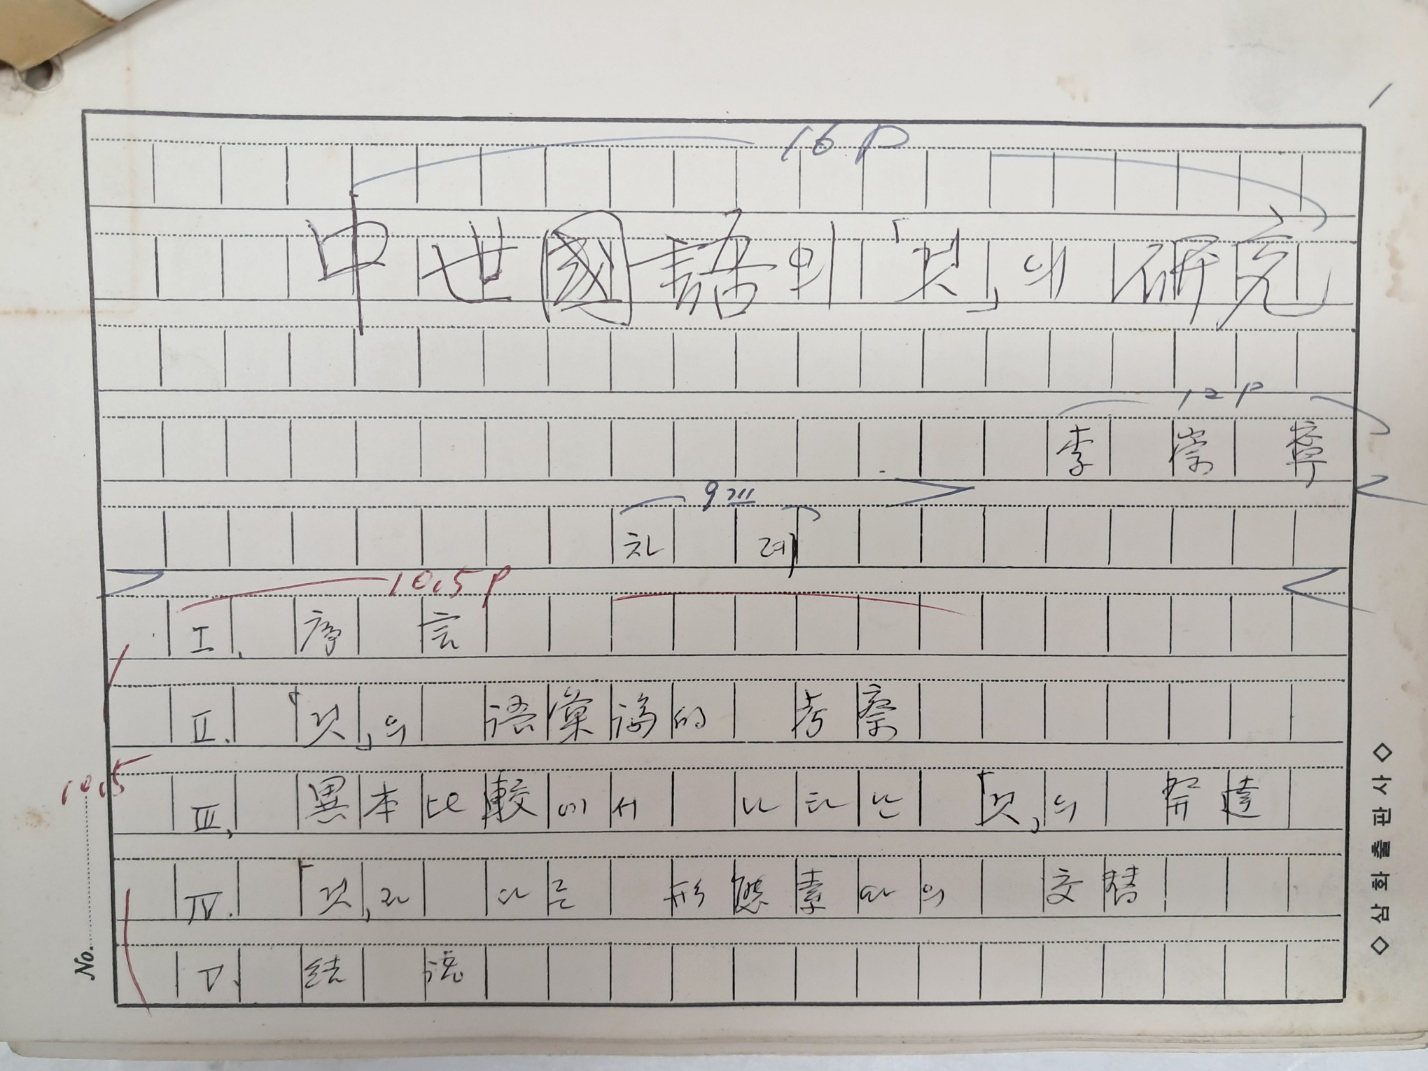 1
16 P
中世國語의 「것」의 研究
12 P
李 崇 寧
9포
차 례
10.5 P
I. 序 言
II. 「것」의 語彙論的 考察
10.5
III. 異本比較에서 나타난 「것」의 發達
IV. 「것」과 다른 形態素와의 交替
V. 結 語
No.
◇ 삼 화 출 판 사 ◇